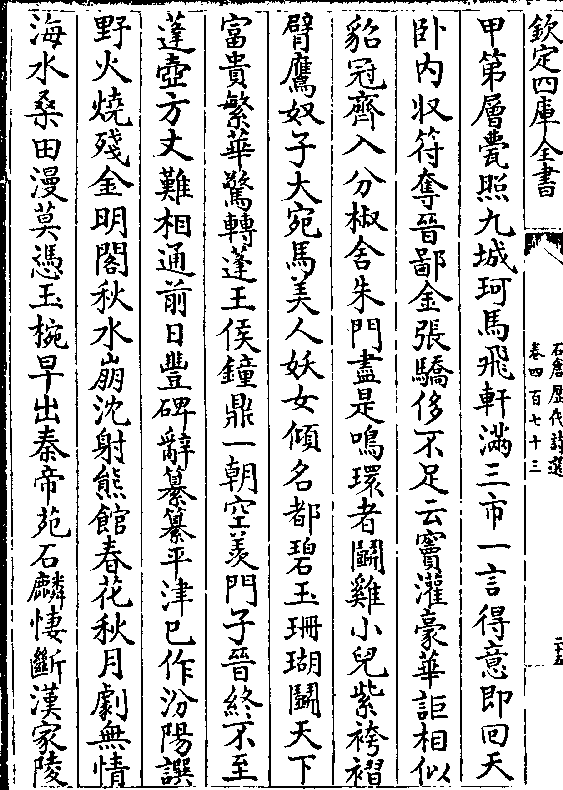 欽定四庫全書
石倉歷代詩選
卷四百七十三
甲第層甍照九城珂馬飛軒滿三市一言得意即回天
卧内収符奪晉鄙金張驕侈不足云竇灌豪華詎相似
貂冠齊入分椒舍朱門盡是鳴環者鬭雞小兒紫袴褶
臂鷹奴子大宛馬美人妖女傾名都碧玉珊瑚鬭天下
富貴繁華驚轉蓬王侯鐘鼎一朝空羡門子晉終不至
蓬壺方丈難相通前日豐碑辭纂纂平津已作汾陽譔
野火燒殘金明閣秋水崩沈射熊館春花秋月劇無情
海水桑田漫莫憑玉椀早出秦帝苑石麟悽斷漢家陵